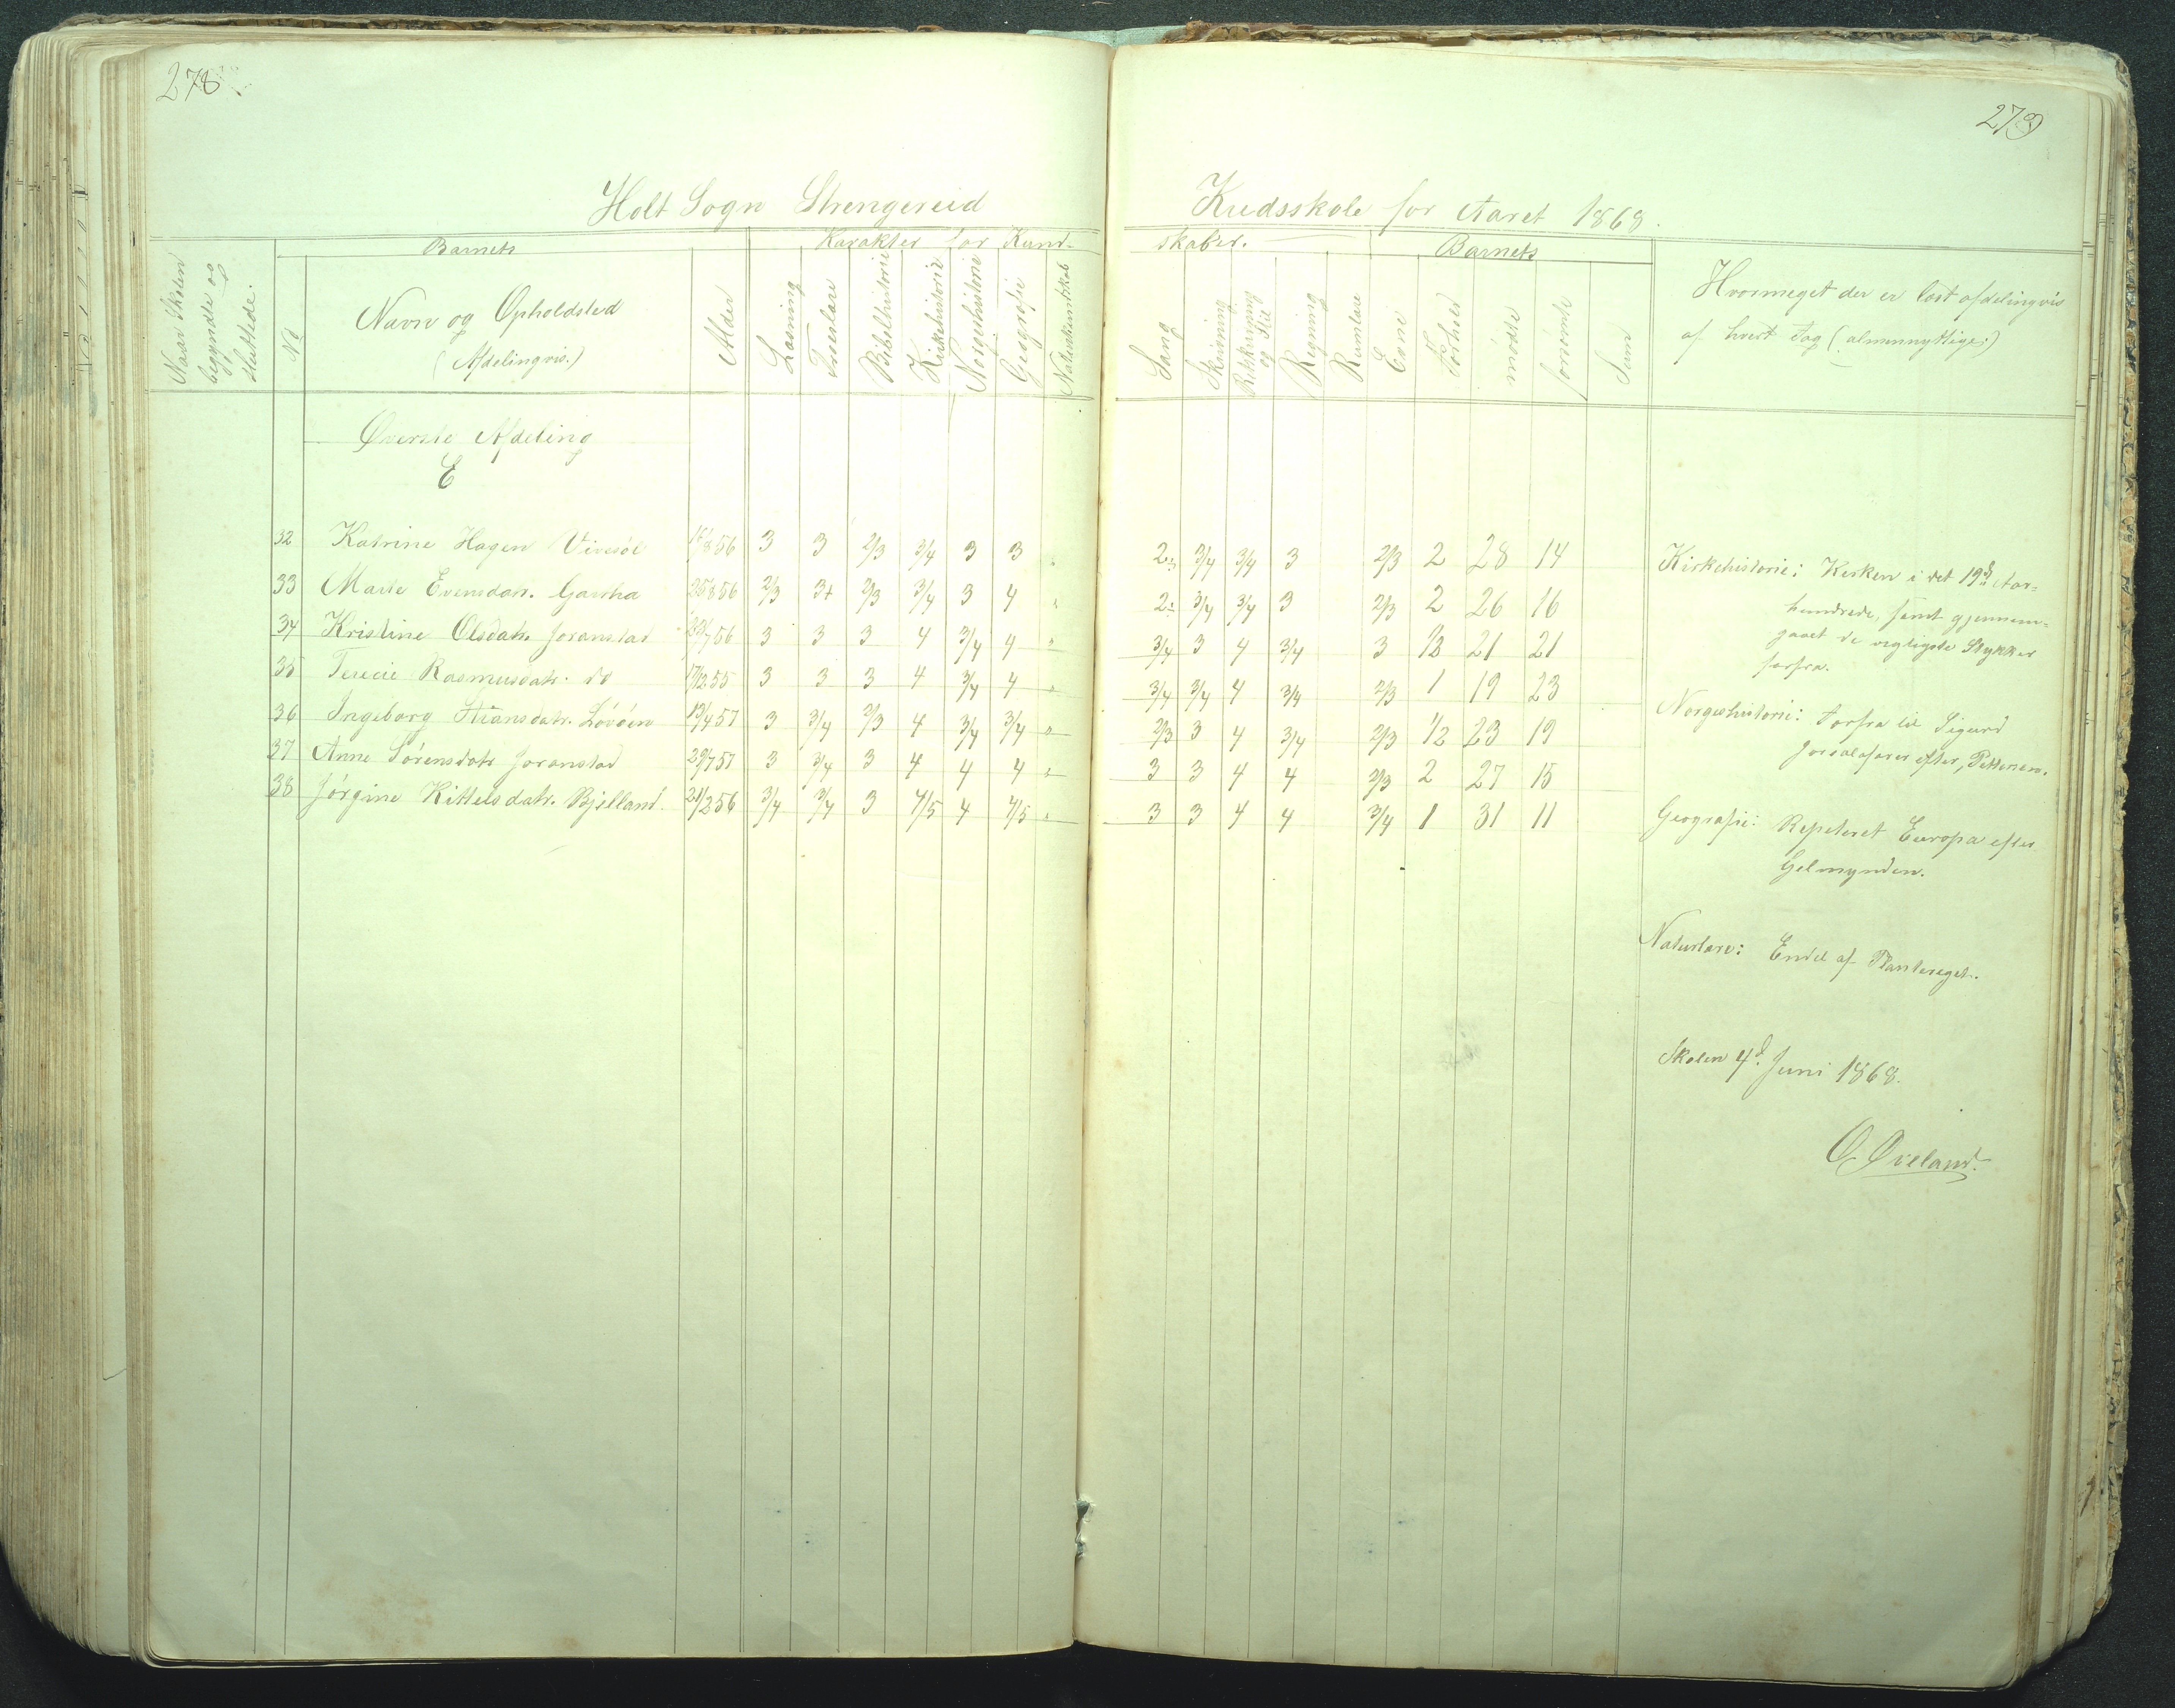 278
279
Holt Sogn Strengereid Kredsskole for Aaret 1868.
Naar Skolen begyndte og sluttede.
No
Barnets
Navn og Opholdsted
(Afdelingvis.)
Alder
Karakter for Kund-
skaber.
Læsning
Troeslære
Bibelhistorie
Kirkehistorie
Norgeshistorie
Geografie
Naturkundskab
Sang
Skrivning
Retskrivning og Stil
Regning
Rumlære
Barnets
Evne
Forhold
mødte
forsømte
Sum
Hvormeget der er læst afdelingvis
af hvert Fag (almennyttige.)
Øverste Afdeling
E
32 Katrine Hagen 14/8 56 3 3 2/3 3/4 3 3 " 2 3/4 3/4 3 2/3 2 28 14
33 Marte Evensdatr. Gartha 25/8 56 2/3 3+ 2/3 3/4 3 4 " 2 3/4 3/4 3 2/3 2 26 16
34 Kristine Olsdatr. Joranstad 23/7 56 3 3 3 4 3/4 4 " 3/4 3 4 3/4 3 1/2 21 21
35 Terecie Rasmusdatr. do 17/12 55 3 3 3 4 3/4 4 " 3/4 3/4 4 3/4 2/3 1 19 23
36 Ingeborg Hansdatr. Løvøen 13/4 57 3 3/4 2/3 4 3/4 3/4 " 2/3 3 4 3/4 2/3 1/2 23 19
37 Anne Sørensdatr Joranstad 29/7 57 3 3/4 3 4 4 4 " 3 3 4 4 2/3 2 27 15
38 Jørgine Kittelsdatr. Bjelland. 21/2 56 3/4 3/4 3 4/5 4 4/5 " 3 3 4 4 3/4 1 31 11
Kirkehistorie: Kirken i det 19de Aar-
hundrede, samt gjennem-
gaaet de vigtigste Stykker
forfra.
Norgeshistorie: Forfra til Sigurd
Jorsalafarer efter, Pettersen.
Geografie: Repeteret Europa efter
Gelmynden.
Naturlære: Endel af Planteriget.
Skolen 4d. Juni 1868.
O. Øveland.